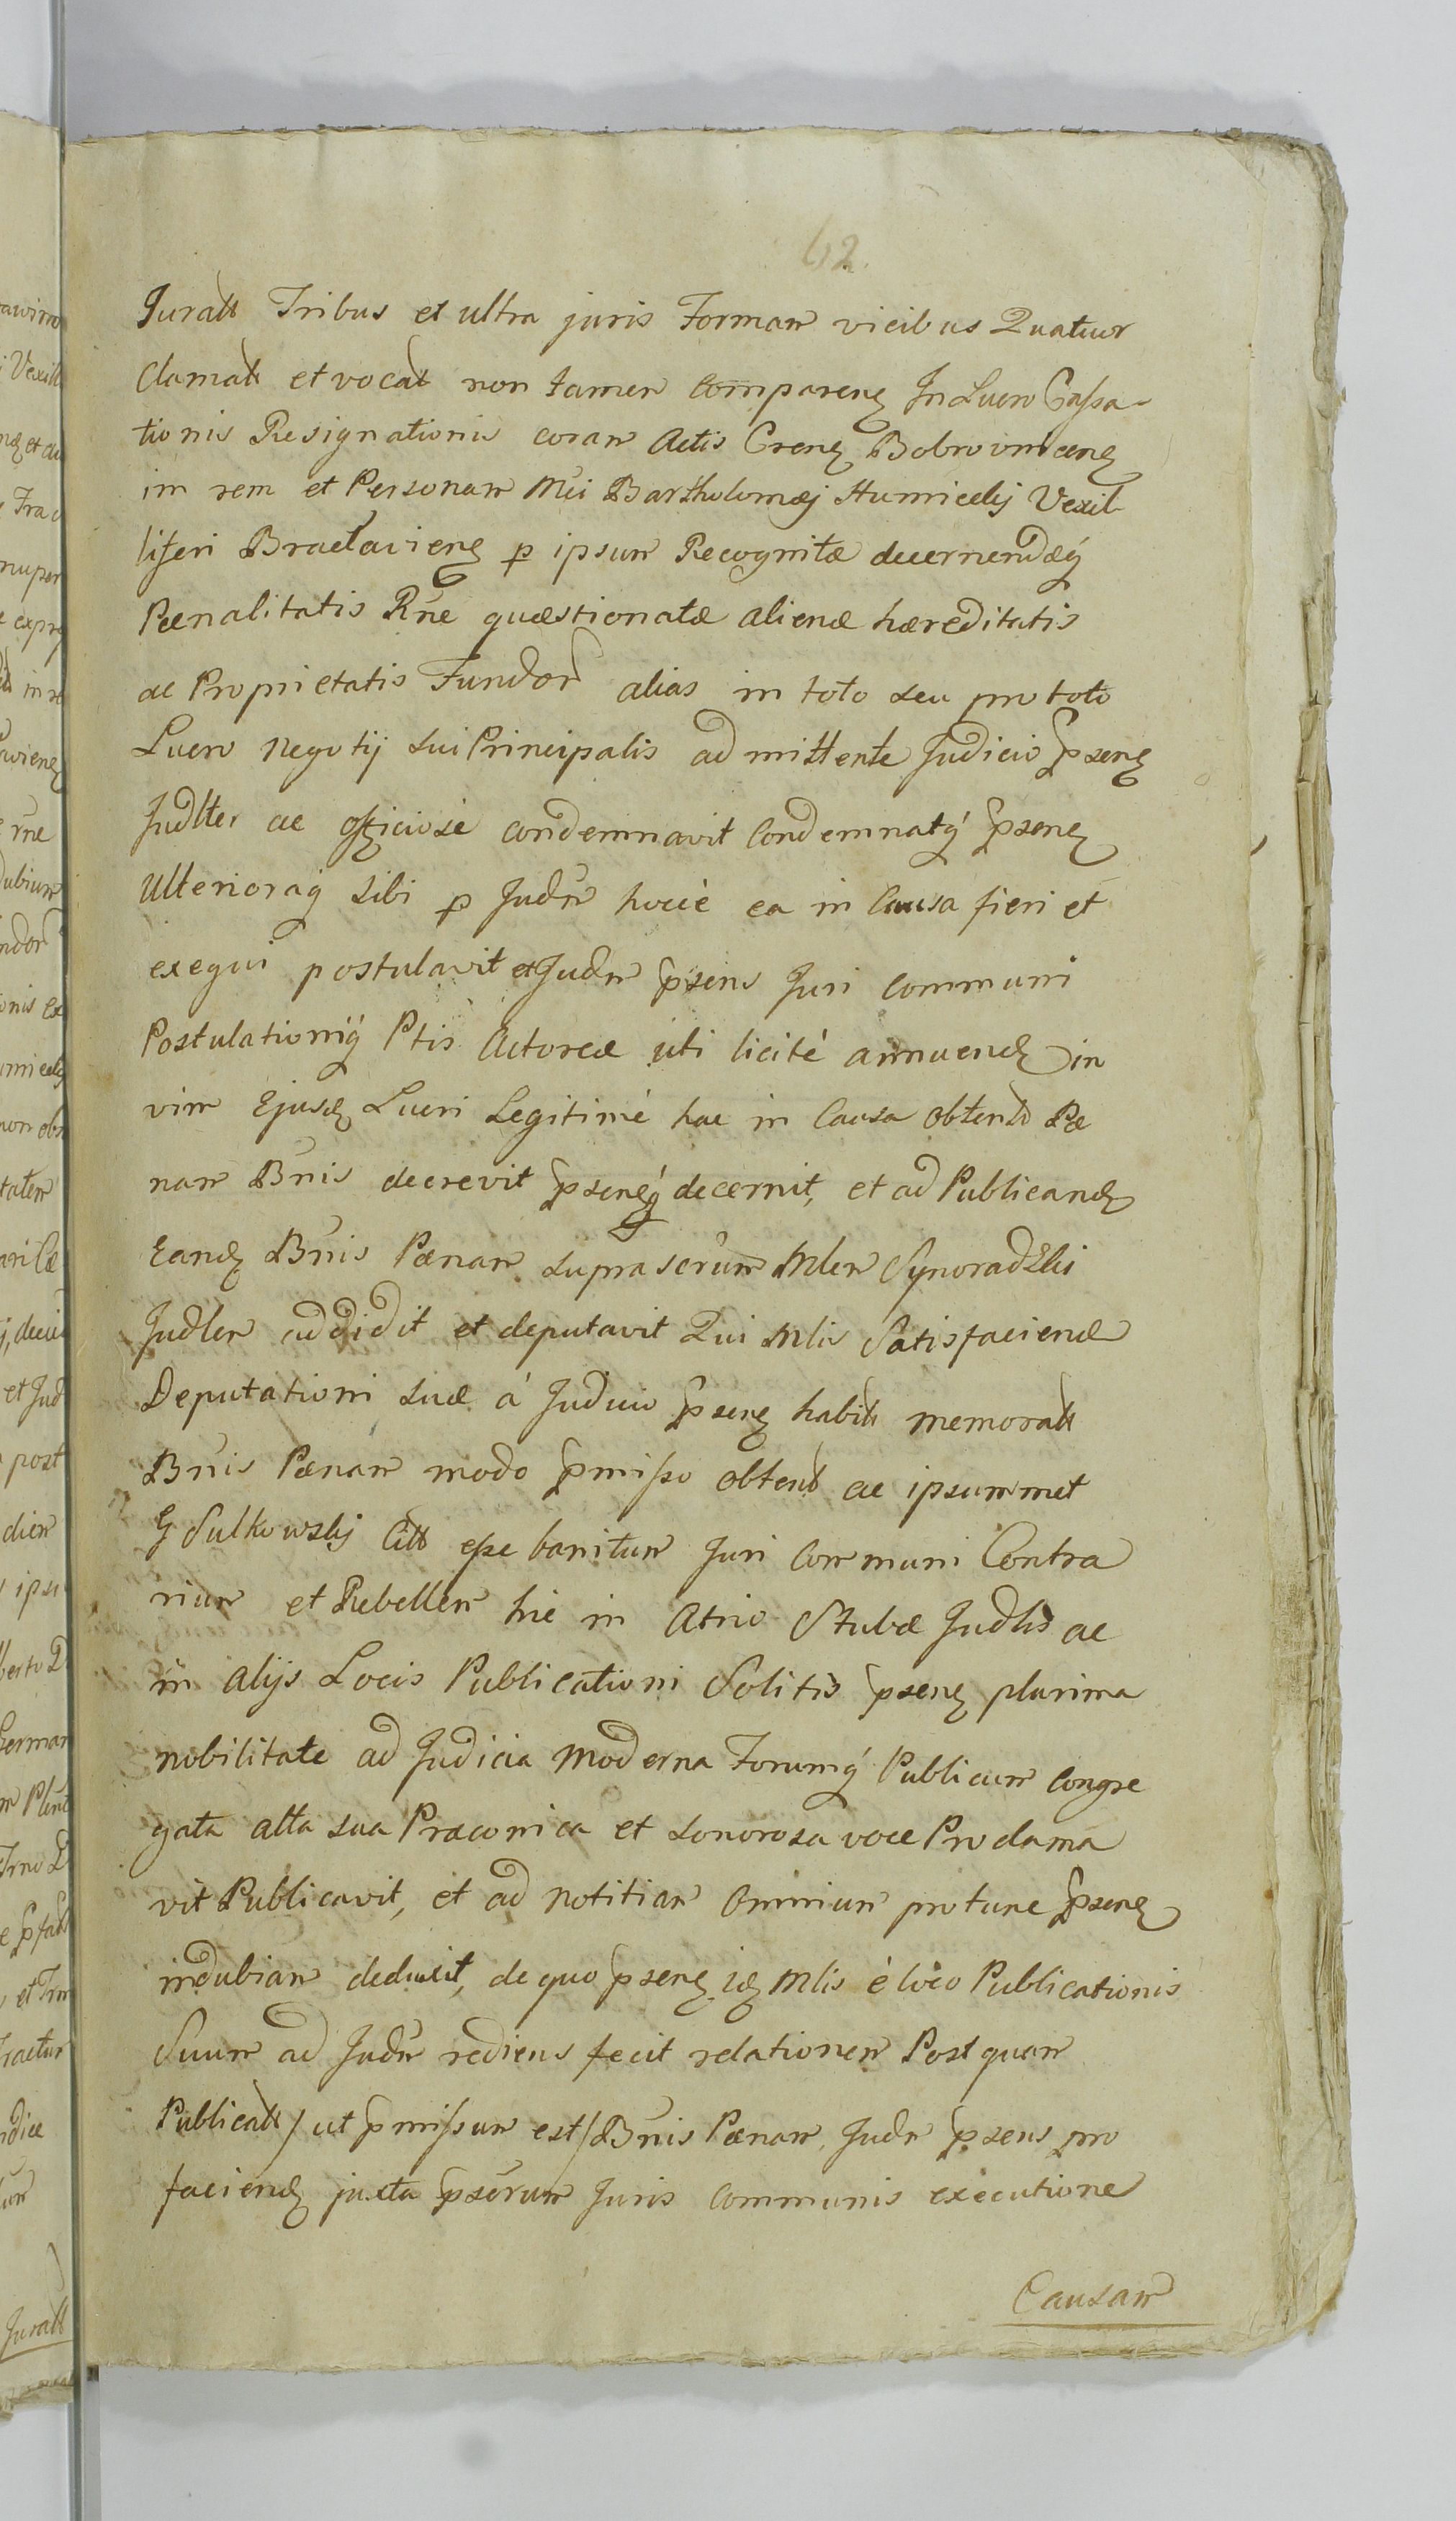 62.
Juratt Tribus et ultra juris Formam vicibus Quatuor
Clamatt et vocat non tamen Comparenq In Lucro Cassa-
tionis Resignationis coram Actis Crenq Bobrownicenq
in rem et Personam Mci Bartholomæj Humiecky Vexil-
liferi Braclavienq p ipsum Recognitæ decernendæq
Pœnalitatis Rne quæstionatæ alienæ hæreditatis
ac Proprietatis Fundor alias in toto seu pro toto
Lucro Negotij sui Principalis admittente Judicio psenq
Judlter ac officiose condemnavit Condemnatq psenq
Ulterioraq sibi p Judm hocce ea in Causa fieri et
exequi postulavit et Judm psens Juri communi
Postulationiq Ptis Actoreæ uti licité annuend in
vim Ejusd Lucri Legitimé hac in Causa obtento Pæ
nam Bnis decrevit psenqq decernit, et ad Publicand
Eand Bnis Pænam suprascrum Mlem Synoradzki
Judlem addidit et deputavit Qui Mlis Satisfaciend
Deputationi suæ á Judicio psenq habitt memoratt
Bnis Pænam modo pmisso obtent ac ipsummet
G Sulkowskj Citt esse banitum Juri Communi Contra
rium et Rebellem hic in Atrio Stubæ Judlis ac
in alijs Locis Publicationi Solitis psenq plurima
nobilitate ad Judicia moderna Forumq Publicum Congre
gata alta sua Præconica et sonorosa voce Proclama
vit Publicavit, et ad notitiam omnium protunc psenq
indubiam deduxit, de quo psenq id Mlis é loco Publicationis
Suum ad Judm rediens fecit relationem Post quam
Publicatt/ut pmissum est/Bnis Pænam, Judm psens pro
faciend juxta pscrum Juris communis executione
Causam